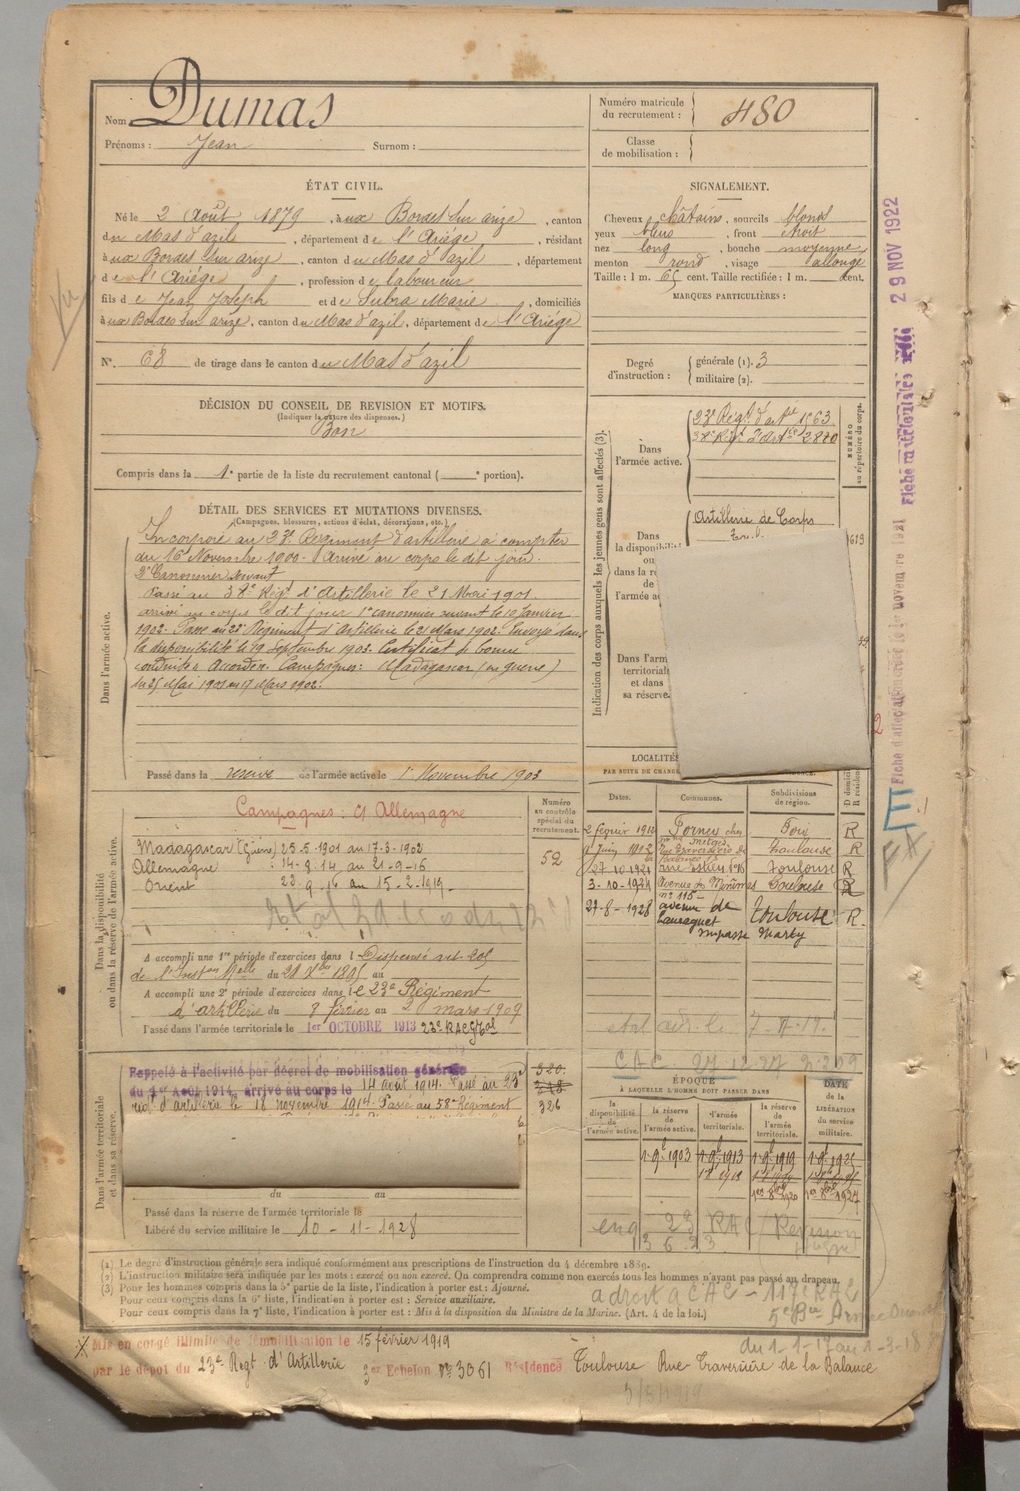 Nom Dumas
Prénoms : Jean Surnom :
Numéro matricule
du recrutement : 480
Classe
de mobilisation :
ÉTAT CIVIL.
Né le 2 Août 1879, à ux Bordes sur arize, canton
du Mas d'azil, département de l'Ariége, résidant
à ux Bordes sur arize, canton du Mas d'azil, département
de l'Ariége, profession de laboureur
fils de Jean Joseph et de Subra Marie, domiciliés
à ux Bordes sur arize, canton du Mas d'azil, département de l'Ariége
N°. 68 de tirage dans le canton du Mas d'azil
SIGNALEMENT.
Cheveux châtains, sourcils blonds
yeux bleus, front étroit
nez long, bouche moyenne
menton rond, visage allongé
Taille : 1 m. 65 cent. Taille rectifiée : 1 m. cent.
MARQUES PARTICULIÈRES :
Degré
d'instruction :
générale (1). 3
militaire (2).
DÉCISION DU CONSEIL DE REVISION ET MOTIFS.
(Indiquer la nature des dispenses.)
Bon
Compris dans la 1e partie de la liste du recrutement cantonal ( e portion).
DÉTAIL DES SERVICES ET MUTATIONS DIVERSES.
(Campagnes, blessures, actions d'éclat, décorations, etc.)
Dans l'armée active.
Incorporé au 23e Régiment d'artillerie à compter
du 16 Novembre 1900. Arrivé au corps le dit jour.
2e Canonnier servant
Passé au 38e Régt d'Artillerie le 21 Mars 1901.
arrivé au corps le dit jour 1e canonnier servant le 10 Janvier
1902. Passé au 23e Régiment d'Artillerie le 21 Mars 1902. Envoyé dans
la disponibilité le 19 Septembre 1903. Certificat de bonne
conduite Accordé. Campagnes: Madagascar (en guerre)
du 25 Mai 1901 au 17 Mars 1902.
Passé dans la réserve de l'armée active le 1er Novembre 1903
Indication des corps auxquels les jeunes gens sont affectés (3).
NUMÉRO
au répertoire du corps.
Dans
l'armée active.
23e Régt d'artie 1563
38e Régt d'Artie 2870
Dans
la disponibil
ou
dans la ré
de
l'armée a
Artillerie de Corps
1619
Dans l'arm
territoriale
et dans
sa réserve.
LOCALITÉS
PAR SUITE DE CHANGE
Dates. Communes. Subdivisions
de région.
D domicile
R résidence
2 février 1910 Fornex Foix R
Juin 1912 Toulouse R
27-10-1921 Toulouse R
3-10-1924 Avenue des Minimes n° 115 Toulouse R
27-8-1928 avenue de
Lauraguet
impasse Marty Toulouse R.
Dans la disponibilité
ou dans la réserve de l'armée active.
Numéro
au contrôle
spécial du
recrutement.
52
Campagnes: Cl Allemagne
Madagascar (Guerre) 25-5-1901 au 17-3-1902
Allemagne : 14-8-14 au 21-9-16
Orient : 22-9-16 au 15-2-1919.
A accompli une 1re période d'exercices dans l Dispensé art. 208
de l'Inston Melle du 28 Xbre 1895 au
A accompli une 2e période d'exercices dans le 23e Régiment
d'artillerie du 8 février au 2 mars 1909
Passé dans l'armée territoriale le 1er OCTOBRE 1913 23e RAC
Dans l'armée territoriale
et dans sa réserve.
Rappelé à l'activité par décret de mobilisation générale
du 1er Août 1914, arrivé au corps le 14 août 1914. Passé au 23e
régt d'artillerie le 18 novembre 1914. Passé au 58e Régiment
320.
318.
326
du au
Passé dans la réserve de l'armée territoriale le
Libéré du service militaire le 10-11-1928
CAC 27 12 27
ÉPOQUE
À LAQUELLE L'HOMME DOIT PASSER DANS
DATE
DE LA
LIBÉRATION
du service
militaire.
la
disponibilité
de
l'armée active.
la réserve
de
l'armée active.
l'armée
territoriale.
la réserve
de
l'armée
territoriale.
1 9e 1903 1 9e 1913 1 9e 1919 1 9e 1925
eng 23 RAC
3 6 23
(1) Le degré d'instruction générale sera indiqué conformément aux prescriptions de l'instruction du 4 décembre 1889.
(2) L'instruction militaire sera indiquée par les mots : exercé ou non exercé. On comprendra comme non exercés tous les hommes n'ayant pas passé au drapeau.
(3) Pour les hommes compris dans la 5e partie de la liste, l'indication à porter est : Ajourné.
Pour ceux compris dans la 6e liste, l'indication à porter est : Service auxiliaire.
Pour ceux compris dans la 7e liste, l'indication à porter est : Mis à la disposition du Ministre de la Marine. (Art. 4 de la loi.)
a droit a CAC - 117e RAC
du 1-1-17 au 1-3-18
Mis en congé illimité de démobilisation le 15 février 1919
par le dépôt du 23e Régt d'Artillerie 3er Echelon No 3061 Résidence Toulouse Rue Traversière de la Balance
29 NOV 1922
Vu